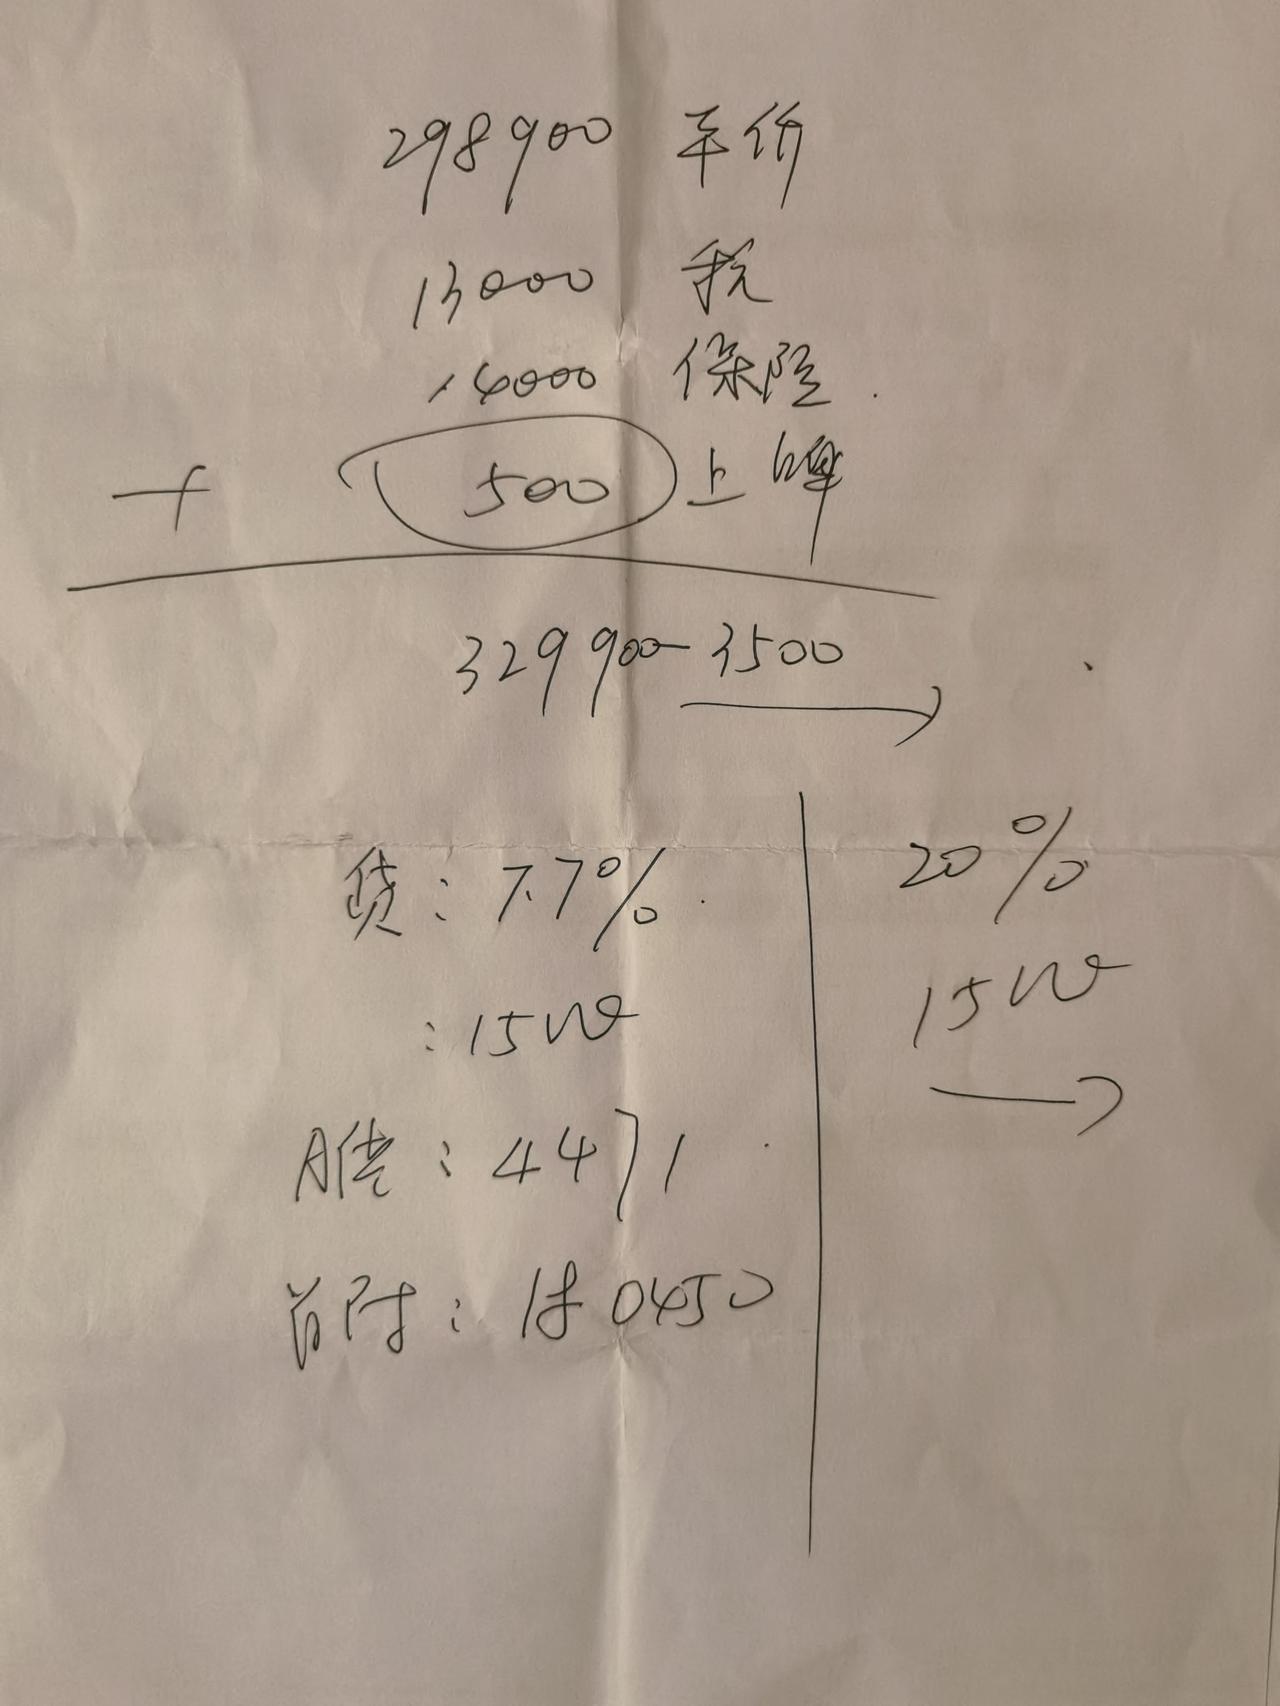 298900 车价
13000 税
14000 保险
+ 500 上牌
329900-3500
贷：7.7%
：15W
月供：4471
首付：180450
20%
15W